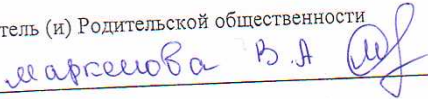 тель (и) Родительской общественности
Маркелова В.А